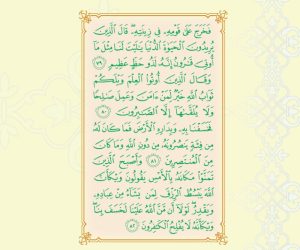 فَخَرَجَ عَلَىٰ قَوْمِهِۦ فِى زِينَتِهِۦ ۖ قَالَ ٱلَّذِينَ
يُرِيدُونَ ٱلْحَيَوٰةَ ٱلدُّنْيَا يَٰلَيْتَ لَنَا مِثْلَ مَآ
أُوتِىَ قَٰرُونُ إِنَّهُۥ لَذُو حَظٍّ عَظِيمٍ ٧٩
وَقَالَ ٱلَّذِينَ أُوتُوا۟ ٱلْعِلْمَ وَيْلَكُمْ
ثَوَابُ ٱللَّهِ خَيْرٌ لِّمَنْ ءَامَنَ وَعَمِلَ صَٰلِحًا
وَلَا يُلَقَّىٰهَآ إِلَّا ٱلصَّٰبِرُونَ ٨٠
فَخَسَفْنَا بِهِۦ وَبِدَارِهِ ٱلْأَرْضَ فَمَا كَانَ لَهُۥ
مِن فِئَةٍ يَنصُرُونَهُۥ مِن دُونِ ٱللَّهِ وَمَا كَانَ
مِنَ ٱلْمُنتَصِرِينَ ٨١ وَأَصْبَحَ ٱلَّذِينَ
تَمَنَّوْا۟ مَكَانَهُۥ بِٱلْأَمْسِ يَقُولُونَ وَيْكَأَنَّ
ٱللَّهَ يَبْسُطُ ٱلرِّزْقَ لِمَن يَشَآءُ مِنْ عِبَادِهِۦ
وَيَقْدِرُ ۖ لَوْلَآ أَن مَّنَّ ٱللَّهُ عَلَيْنَا لَخَسَفَ بِنَا ۖ
وَيْكَأَنَّهُۥ لَا يُفْلِحُ ٱلْكَٰفِرُونَ ٨٢